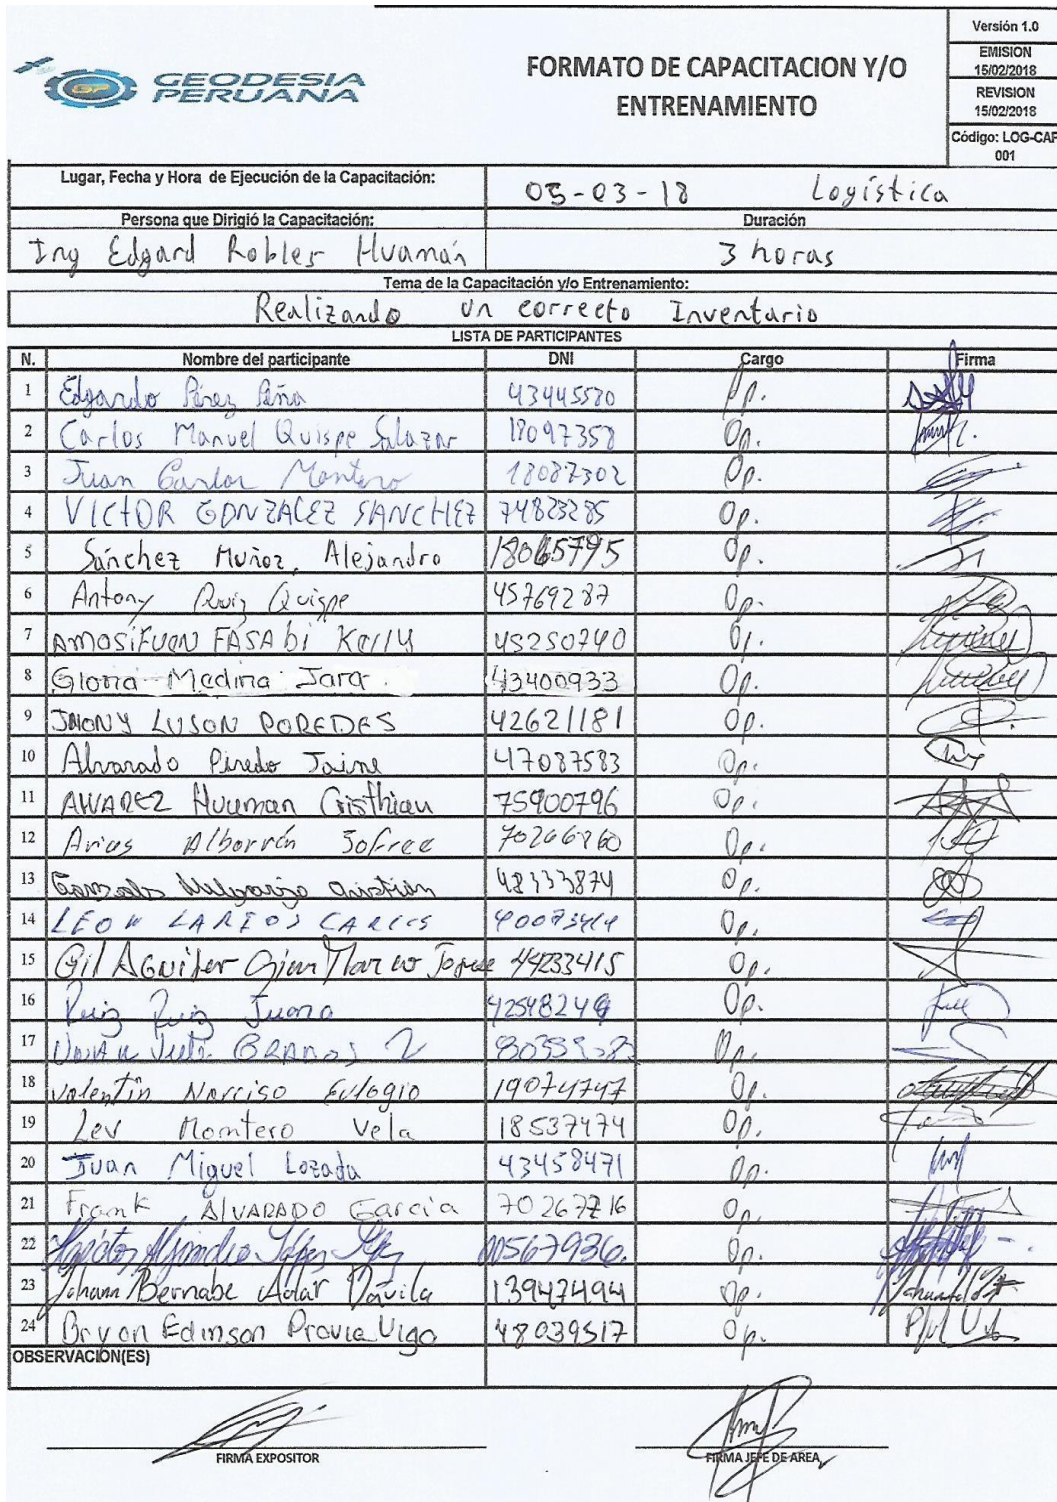 GEODESIA
PERUANA
GP
FORMATO DE CAPACITACION Y/O
ENTRENAMIENTO
Versión 1.0
EMISION
15/02/2018
REVISION
15/02/2018
Código: LOG-CAP
001
Lugar, Fecha y Hora de Ejecución de la Capacitación: 05-03-18 Logística
Persona que Dirigió la Capacitación: Duración
Ing Edgard Robles Huamán 3 horas
Tema de la Capacitación y/o Entrenamiento:
Realizando un correcto Inventario
LISTA DE PARTICIPANTES
N. Nombre del participante DNI Cargo Firma
1 Edgardo Pérez Peña 43445520 Op.
2 Carlos Manuel Quispe Salazar 18097358 Op.
3 Juan Carlos Montero 18087302 Op.
4 VICTOR GONZALEZ SANCHEZ 74823285 Op.
5 Sánchez Muñoz, Alejandro 18065795 Op.
6 Antony Ruiz Quispe 45769287 Op.
7 AMASIFUEN FASABI Kelly 45250740 Op.
8 Gloria Medina Jara. 43400933 Op.
9 JHONY LUSON PAREDES 42621181 Op.
10 Alvarado Pinedo Jaime 47087583 Op.
11 ALVAREZ Huaman Cristhian 75900796 Op.
12 Arias Albarrán Jofree 70266860 Op.
13 48333874 Op.
14 LEON LARIOS CARLOS Op.
15 Gil AGuilar Gian Marco 44233415 Op.
16 Ruiz Ruiz Juana Op.
17 Op.
18 Valentín Narciso Eulogio 19074747 Op.
19 Lev Montero Vela 18537474 Op.
20 Juan Miguel Lozada 43458471 Op.
21 Frank ALVARADO García 70267716 Op.
22 Op.
23 Johann Bernabe Adar Davila 13947494 Op.
24 Bryan Edinson Pravia Vigo 48039517 Op.
OBSERVACIÓN(ES)
FIRMA EXPOSITOR FIRMA JEFE DE AREA